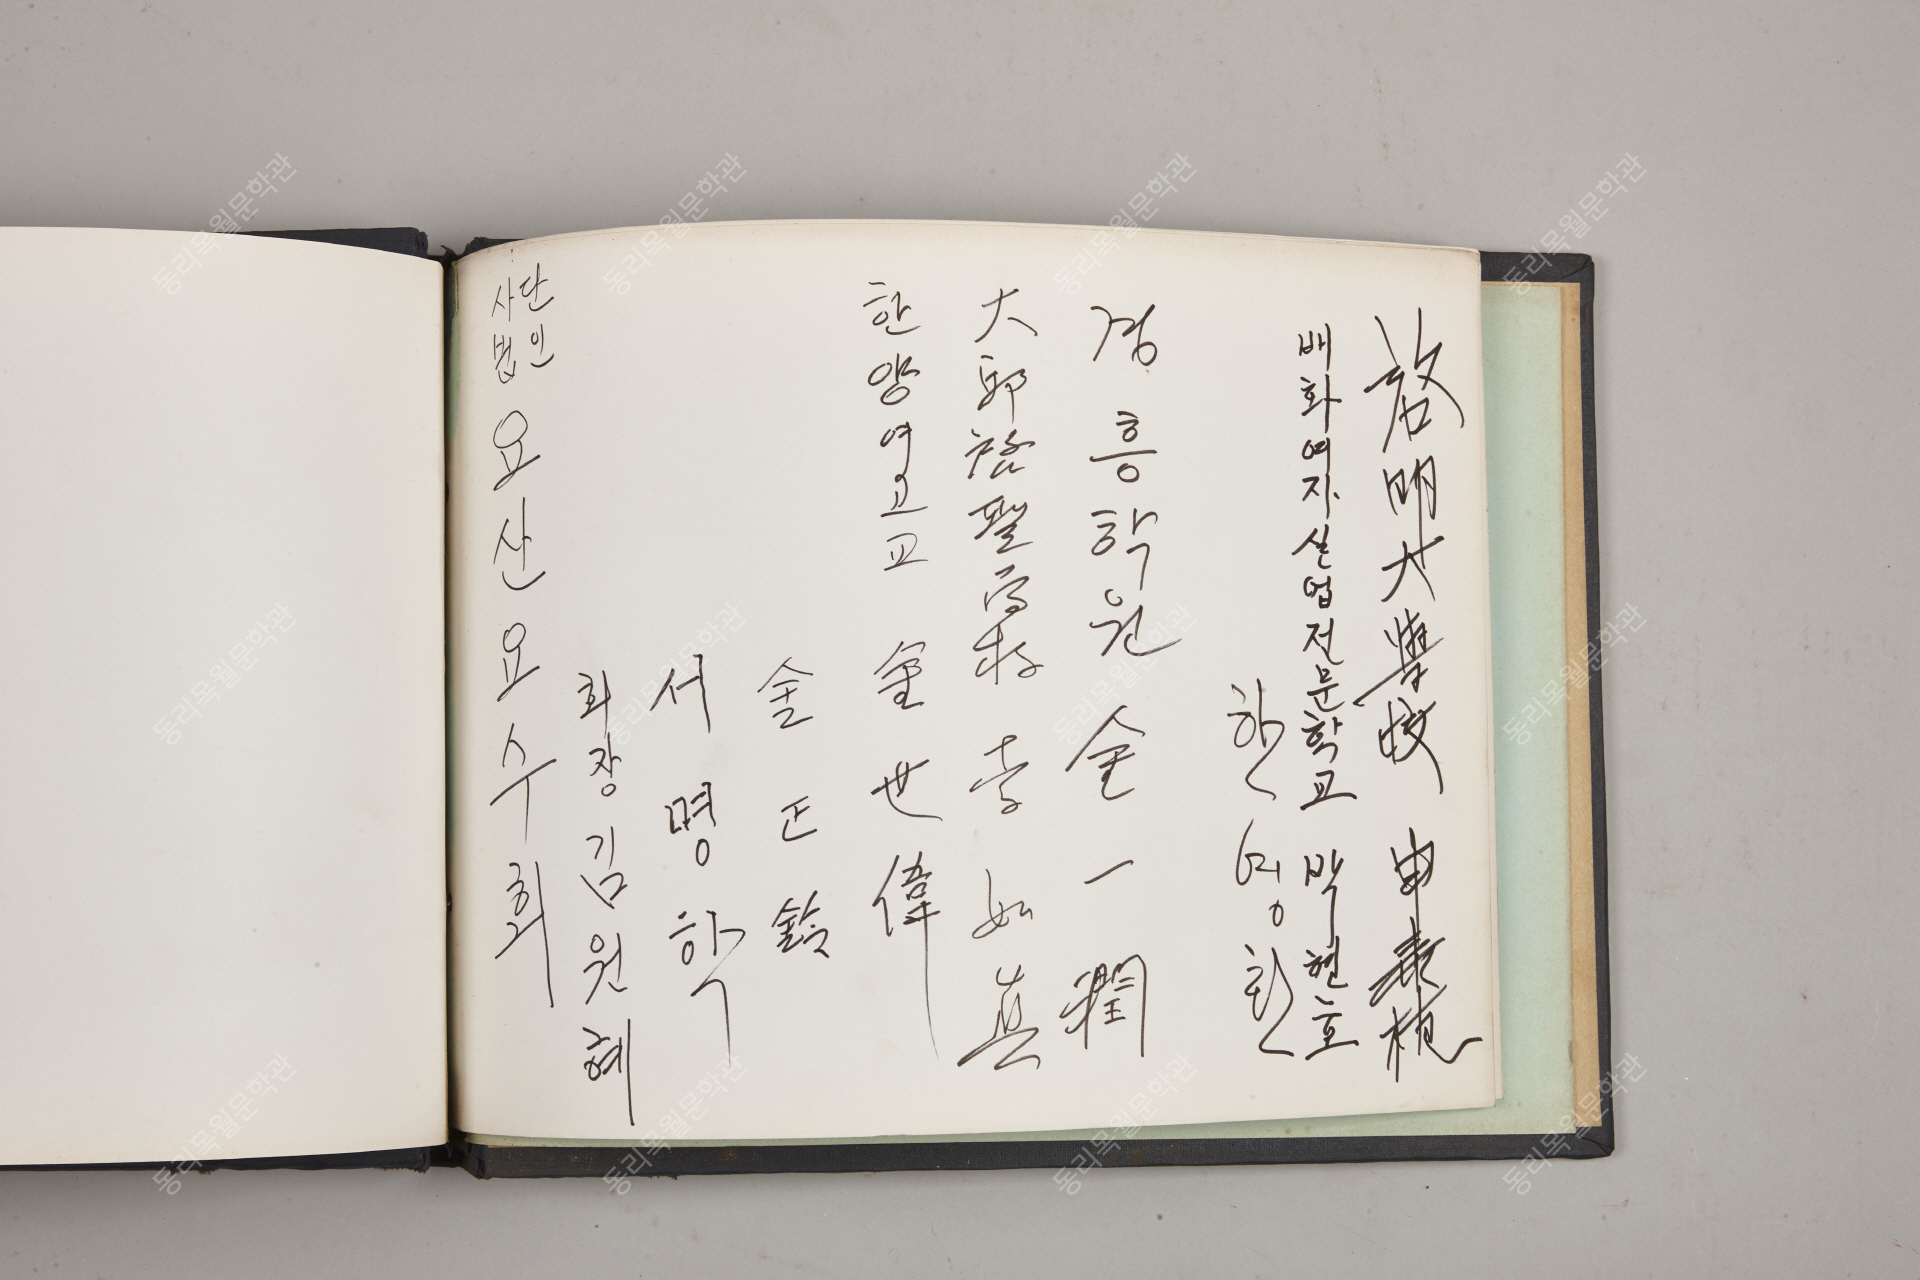 啓明大學校 申素植
배화여자실업전문학교 박현호
한영환
경흥학원 金一潤
大邱啓聖高校 李如真
한양여고교 金世偉
金正鈴
서명학
사단법인 요산요수회
회장 김원혜
동리목월문학관